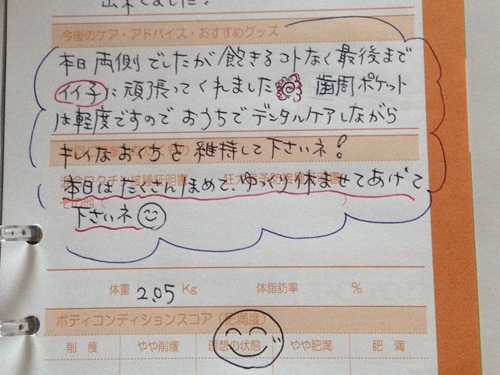 出来てました!
今後のケア・アドバイス・おすすめグッズ
本日両側でしたが飽きるコトなく最後まで
イイ子に頑張ってくれました 歯周ポケット
は軽度ですので おうちでデンタルケアしながら
キレイなおくちを維持して下さいネ!
ワクチン接種証明書
本日はたくさんほめて、ゆっくり休ませてあげて
その他(
下さいネ
体重 2.05 Kg 体脂肪率 %
ボディコンディションスコア(肥満度)
削痩 やや削痩 理想の状態 やや肥満 肥満